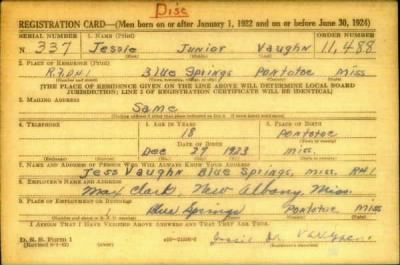 Disc
REGISTRATION CARD—(Men born on or after January 1, 1922 and on or before June 30, 1924)
SERIAL NUMBER 1. NAME (Print) ORDER NUMBER
N 337 Jessie Junior Vaughn 11,488
(First) (Middle) (Last)
2. PLACE OF RESIDENCE (Print)
R.F.D #1 Blue Springs Pontotoc Miss
[THE PLACE OF RESIDENCE GIVEN ON THE LINE ABOVE WILL DETERMINE LOCAL BOARD
JURISDICTION; LINE 2 OF REGISTRATION CERTIFICATE WILL BE IDENTICAL]
3. MAILING ADDRESS
Same
4. TELEPHONE 5. AGE IN YEARS 6. PLACE OF BIRTH
18 Pontotoc
DATE OF BIRTH
Dec 1923 Miss.
7. NAME AND ADDRESS OF PERSON WHO WILL ALWAYS KNOW YOUR ADDRESS
Jess Vaughn Blue Springs, Miss. R#1
8. EMPLOYER'S NAME AND ADDRESS
Max Clark, New Albany, Miss.
9. PLACE OF EMPLOYMENT OR BUSINESS
Blue Springs Pontotoc Miss
I AFFIRM THAT I HAVE VERIFIED ABOVE ANSWERS AND THAT THEY ARE TRUE.
D. S. S. Form 1